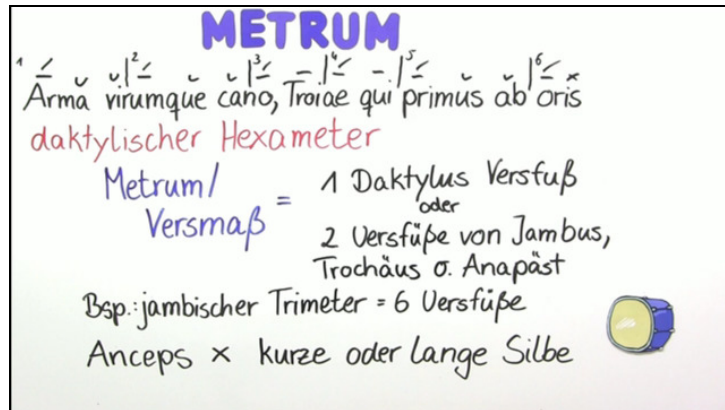 METRUM
1 2 3 4 5 6
Arma virumque cano, Troiae qui primus ab oris
daktylischer Hexameter
Metrum/ = 1 Daktylus Versfuß
oder
Versmaß 2 Versfüße von Jambus,
Trochäus o. Anapäst
Bsp.: jambischer Trimeter = 6 Versfüße
Anceps × kurze oder lange Silbe